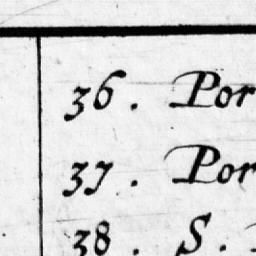 36. Por
37. Por
38. S.